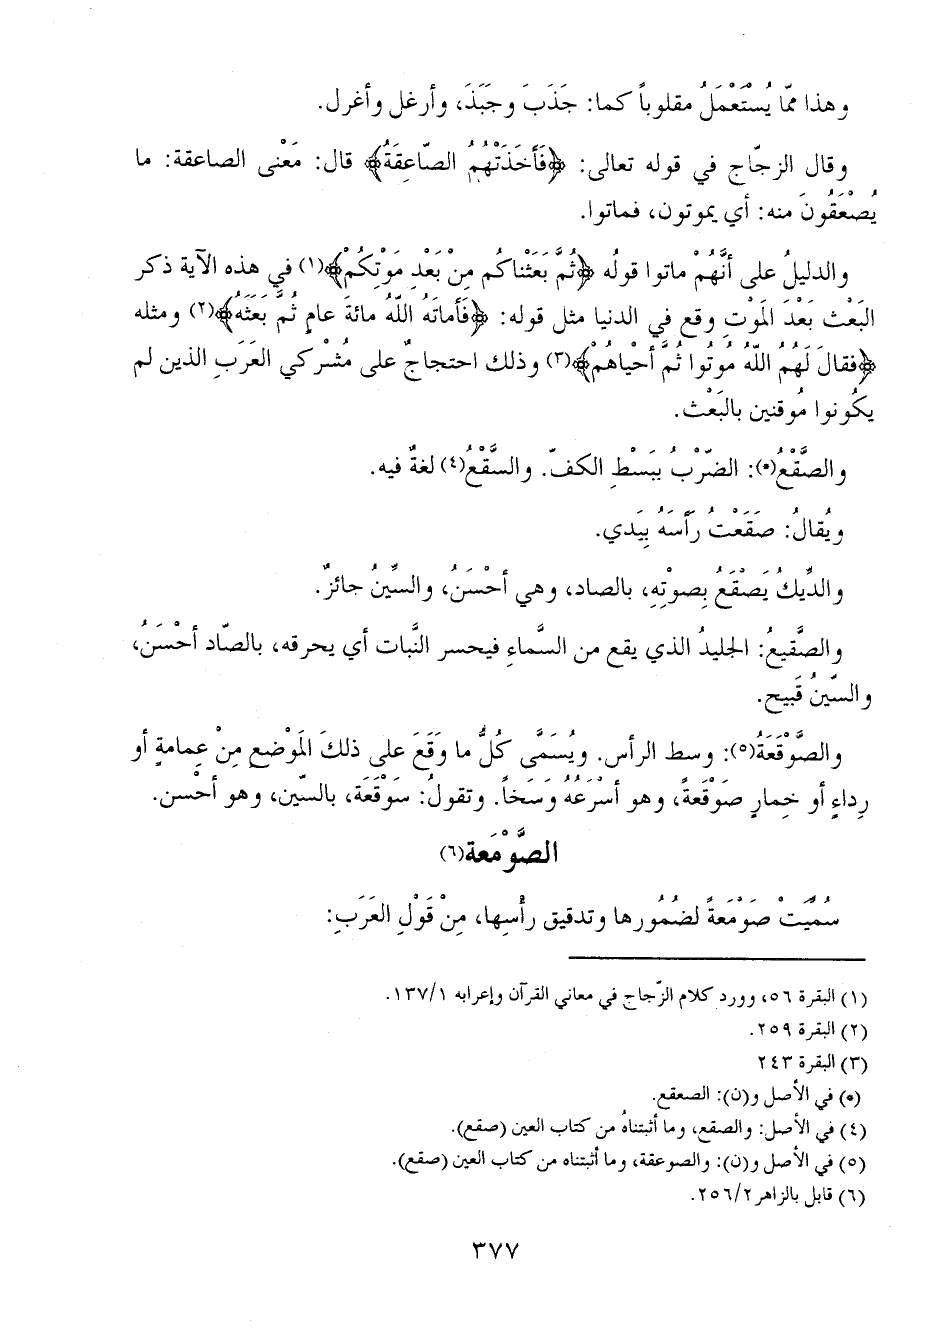 وهذا ممّا يُسْتَعْمَلُ مقلوباً كما: جَذَبَ وجَبَذَ، وأرغل وأغرل.
وقال الزجّاج في قوله تعالى: ﴿فَأَخَذَتْهُمُ الصّاعِقَةُ﴾ قال: مَعْنى الصاعقة: ما
يُصْعَقُونَ منه: أي يموتون، فماتوا.
والدليلُ على أنَّهُمْ ماتوا قولُه ﴿ثُمَّ بَعَثْناكُم مِنْ بَعْدِ مَوْتِكُمْ﴾(١) في هذه الآية ذكر
البَعْث بَعْدَ المَوْتِ وقع في الدنيا مثل قوله: ﴿فَأَماتَهُ اللّهُ مائةَ عامٍ ثُمَّ بَعَثَهُ﴾(٢) ومثله
﴿فقالَ لَهُمُ اللّهُ مُوتُوا ثُمَّ أحْياهُمْ﴾(٣) وذلك احتجاجٌ على مُشْركي العَرَبِ الذين لم
يكُونوا مُوقنين بالبَعْث.
والصَّقْعُ(*): الضّرْبُ بِبَسْطِ الكفّ. والسَّقْعُ(٤) لغةٌ فيه.
ويُقالُ: صَقَعْتُ رَأسَهُ بِيَدي.
والدِّيكُ يَصْقَعُ بِصوْتِهِ، بالصاد، وهي أحْسَنُ، والسِّينُ جائزٌ.
والصَّقيعُ: الجليدُ الذي يقع من السَّماءِ فيحسر النَّبات أي يحرقه، بالصّاد أحْسَنُ،
والسّينُ قَبيح.
والصَّوْقَعَةُ(٥): وسط الرأس. ويُسَمَّى كُلُّ ما وَقَعَ على ذلكَ المَوْضع مِنْ عِمامةٍ أو
رِداءٍ أو خِمارٍ صَوْقَعةً، وهو أسْرَعُهُ وَسَخاً. وتقولُ: سَوْقَعَة، بالسّين، وهو أحْسن.
الصَّوْمَعة(٦)
سُمِّيَتْ صَوْمَعةً لضُمُورها وتدقيق رأْسِها، مِنْ قَوْلِ العَرَبِ:
(١) البقرة ٥٦، وورد كلام الزّجاج في معاني القرآن وإعرابه ١/‏١٣٧.
(٢) البقرة ٢٥٩.
(٣) البقرة ٢٤٣
(*) في الأصل و(ن): الصعقع.
(٤) في الأصل: والصقع، وما أثبتناهُ من كتاب العين (صقع).
(٥) في الأصل و(ن): والصوعقة، وما أثبتناه من كتاب العين (صقع).
(٦) قابل بالزاهر ٢/‏٢٥٦.
٣٧٧